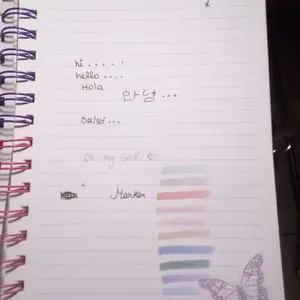 hi . . . . .
hello . . . .
Hola
안녕 ...
Salut ...
Oh my God ♡
Marker